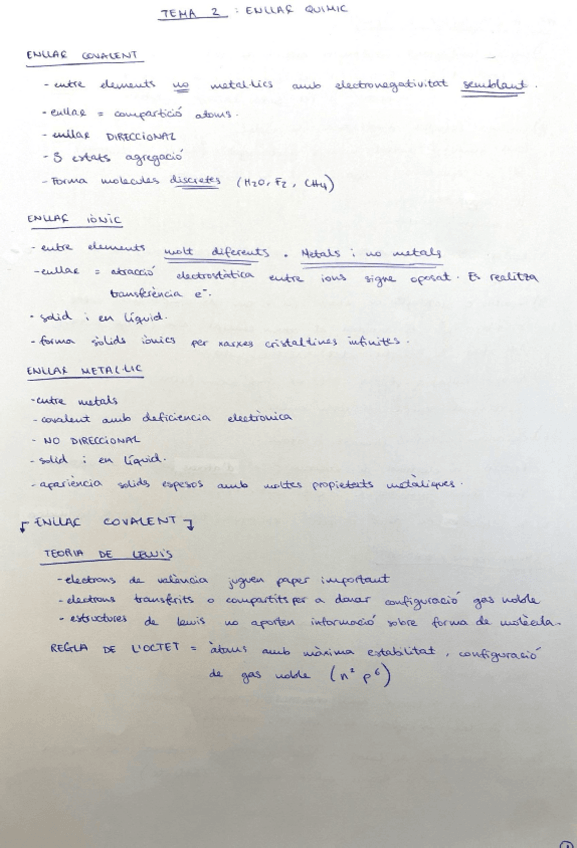 TEMA 2 : ENLLAÇ QUÍMIC
ENLLAÇ COVALENT
- entre elements no metal·lics amb electronegativitat semblant.
- enllaç = compartició atoms.
- enllaç DIRECCIONAL
- 3 estats agregació
- Forma molecules discretes (H2O, F2, CH4)
ENLLAÇ IÒNIC
- entre elements molt diferents. Metals i no metals
- enllaç = atracció electrostàtica entre ions signe oposat. Es realitza
transferència e-.
- solid i en líquid.
- forma sòlids iònics per xarxes cristal·lines infinites.
ENLLAÇ METAL·LIC
- entre metals
- covalent amb deficiencia electrònica
- NO DIRECCIONAL
- solid i en líquid.
- apariència solids espesos amb moltes propietats metàliques.
ENLLAÇ COVALENT
TEORIA DE LEWIS
- electrons de valència juguen paper important
- electrons transferits o compartits per a donar configuració gas noble
- estructures de lewis no aporten informació sobre forma de molècula.
REGLA DE L'OCTET = àtoms amb màxima estabilitat, configuració
de gas noble (n² p⁶)
1